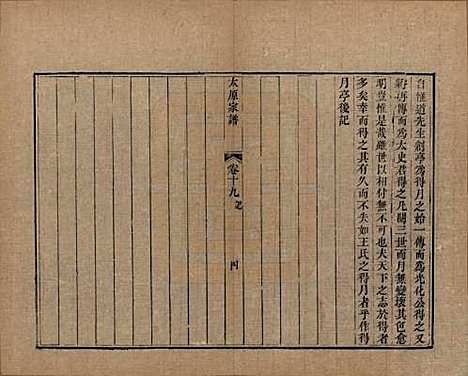 自惟道先生創亭為得月之始一傳而為光化公得之又
再傳而為太史君得之凡關三世而月無變壞其色愈
明豈惟是哉雖世相付無不可也夫天下之志於得者
多矣幸而得之其有久而不失如王氏之得月者乎作得
月亭後記
太原家譜
卷十九
四